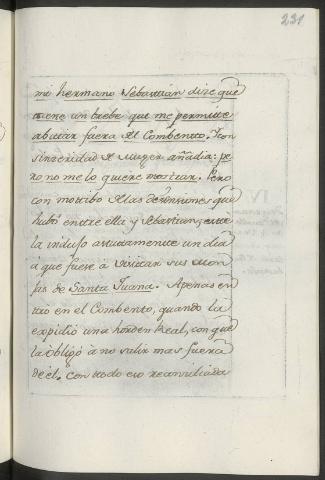 231
mi hermano Sebastián dize que
tiene un brebe que me permite
abitar fuera del Combento. Y con
sinzeridad de muger añadia: pe
ro no me lo quiere mostrar. Pero
con motibo de las desuniones que
hubo entre ella y Sebastian, este
la indujo astutamente un dia
á que fuese á visitar sus Mon
jas de Santa Juana. Apenas en
tró en el Combento, quando la
expidió una horden Real, con que
la obligó á no salir mas fuera
de él. con todo eso reconciliada